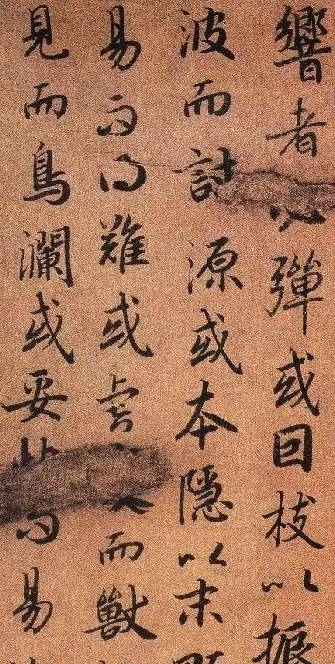 響者彈或因枝以振
波而討源或本隱以末
易而得難或虎而獸
見而鳥瀾或妥而易